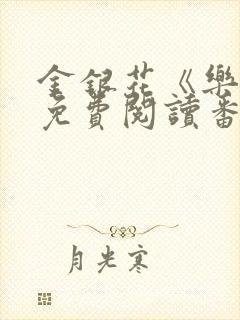 金銀花《樂
免費閱讀番
月光寒